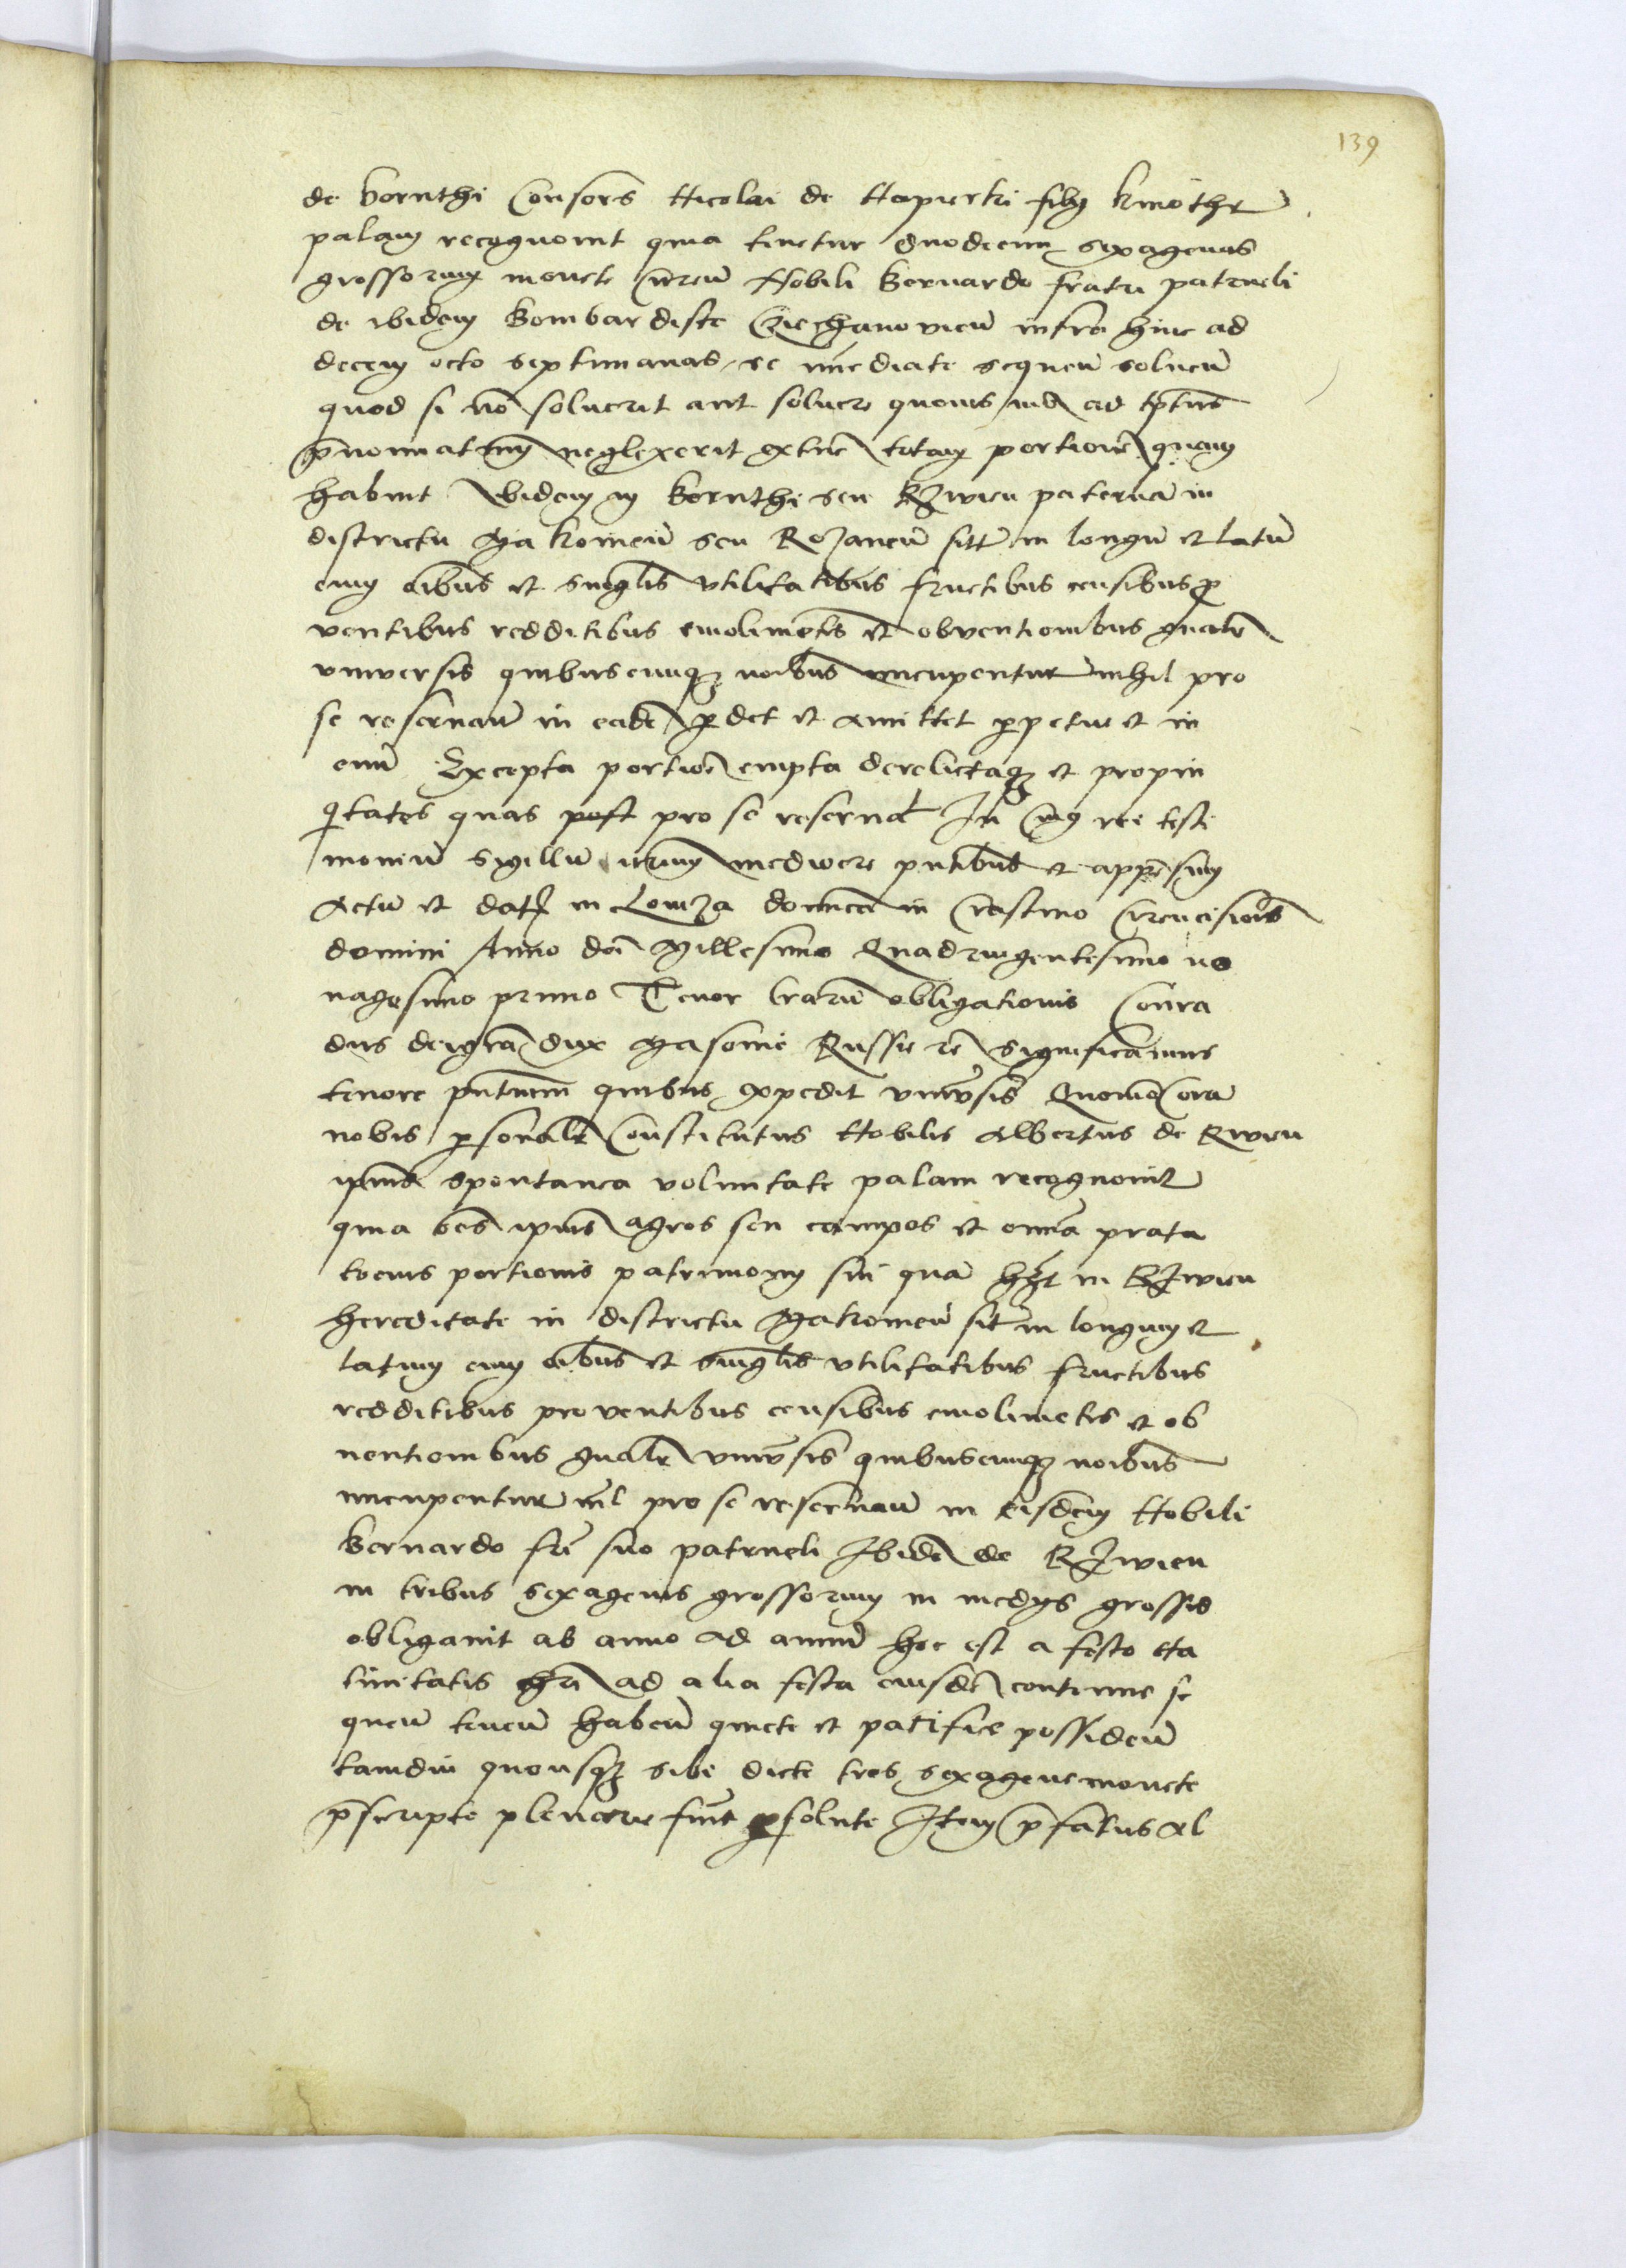 139
de bornthi Consors Nicolai de Napierki filÿ kmothr
palam recognovit quia tenetur duodecim sexagenas
grossorum monete Curren̄ Nobili bernardo fratri patrueli
de ibidem bombardiste Cziechanovien̄ infra hinc ad
decem octo septimanas se īmediate sequen̄ soluen̄
quod si nō soluerit aut soluere quovis mō ad
p̄nominatum neglexerit extunc totam portionē quam
habuit ibidem in bornthi seu Rzwien paternā in
districtu Makowien̄ seu Rozanen̄ sitt in longū et latū
cum oībus et singlis vtilitatibus fructibus censibus pro
ventibus redditibus emolimētis et obventionibus gnālr
vniversis quibuscumqz noībus nuncupentur nihil pro
se reservan̄ in eadē perdet et amittet perpetue et in
eum Excepta portiōe empta derelictaqz et propin
qtates quas post pro se reservat In Cuius rei testi
monium sigillū nrūm mediocre pn̄tibus est appēsum
Actū et datz in Lomza dominica in Crastino Circucisiōis
domini Anno dn̄i Millesimo Quadringentesimo no
nagesimo primo Tenor lrārū obligationis Conra
dus dei grā dux Masovie Russie zc significamus
tenore pn̄tium quibus expedit vniv̄sis Quomō Cora
nobis personalr Constitutus Nobilis Albertus de Rwien
ipius spontanea voluntate palam recognovit
quia oēs ipius agros seu campos et omīa prata
tocius portionis patrimonÿ sui quā hz̄t in Rzwien
hereditate in districtu Makowien̄ sit in longum et
latum cum oībus et singlis vtilitatibus fructibus
redditibus proventibus censibus emolimetis et ob
ventionibus gnālr vniv̄sis quibuscumqz noībus
nuncupentur nīl pro se reservan̄ in eisdem Nobili
bernardo frī suo patrueli Ibidē de Rzwien
in tribus sexagenis grossorum in medÿs grossis
obligavit ab anno ad annum hoc est a festo Na
tivitatis ad alia festa eiusdē continue se
quen̄ tenen̄ haben̄ quiete et pacifice possiden̄
tamdiu quousqz sibi dicte tres sexagene monete
p̄scripte plenarie fuīt persolute Item p̄fatus Al